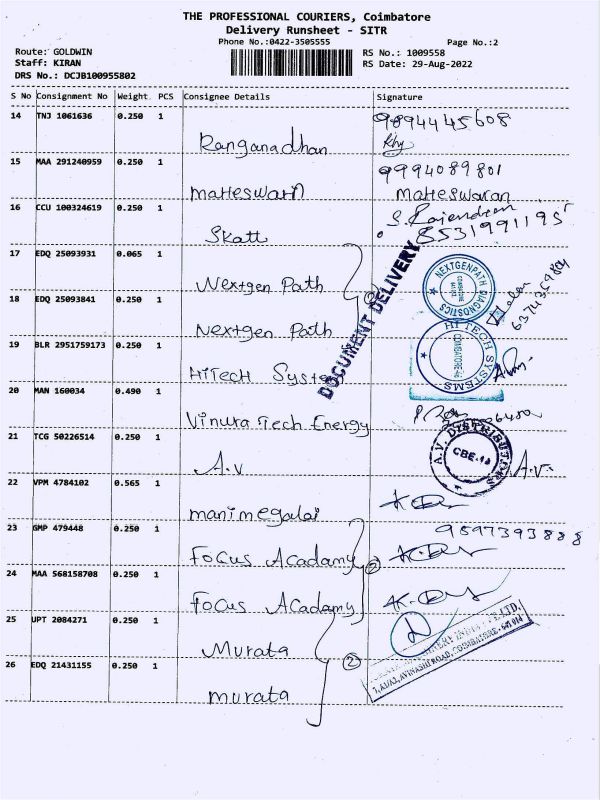 THE PROFESSIONAL COURIERS, Coimbatore
Delivery Runsheet - SITR
Phone No.:0422-3505555
Page No.:2
Route: GOLDWIN
Staff: KIRAN
DRS No.: DCJB100955802
RS No.: 1009558
RS Date: 29-Aug-2022
S No Consignment No Weight PCS Consignee Details Signature
14 TNJ 1061636 0.250 1 Ranganadhan 9894445608
15 MAA 291240959 0.250 1 9994089801
Maheswaran
16 CCU 100324619 0.250 1 Skatt S. Rajendran
8531991195
17 EDQ 25093931 0.065 1 Nextgen Path
18 EDQ 25093841 0.250 1 Nextgen Path
DOCUMENT DELIVERY
NEXTGENPATH DIAGNOSTICS
19 BLR 2951759173 0.250 1 HiTech System
HI TECH SYSTEMS
20 MAN 160034 0.490 1 Vinura Tech Energy
21 TCG 50226514 0.250 1 A.V A.V.
A.V. DISTRIBUTORS
22 VPM 4784102 0.565 1 manimegalai
9597393888
23 GMP 479448 0.250 1 Focus Acadamy
24 MAA 568158708 0.250 1 Focus Acadamy
25 UPT 2084271 0.250 1 Murata
26 EDQ 21431155 0.250 1 murata
2